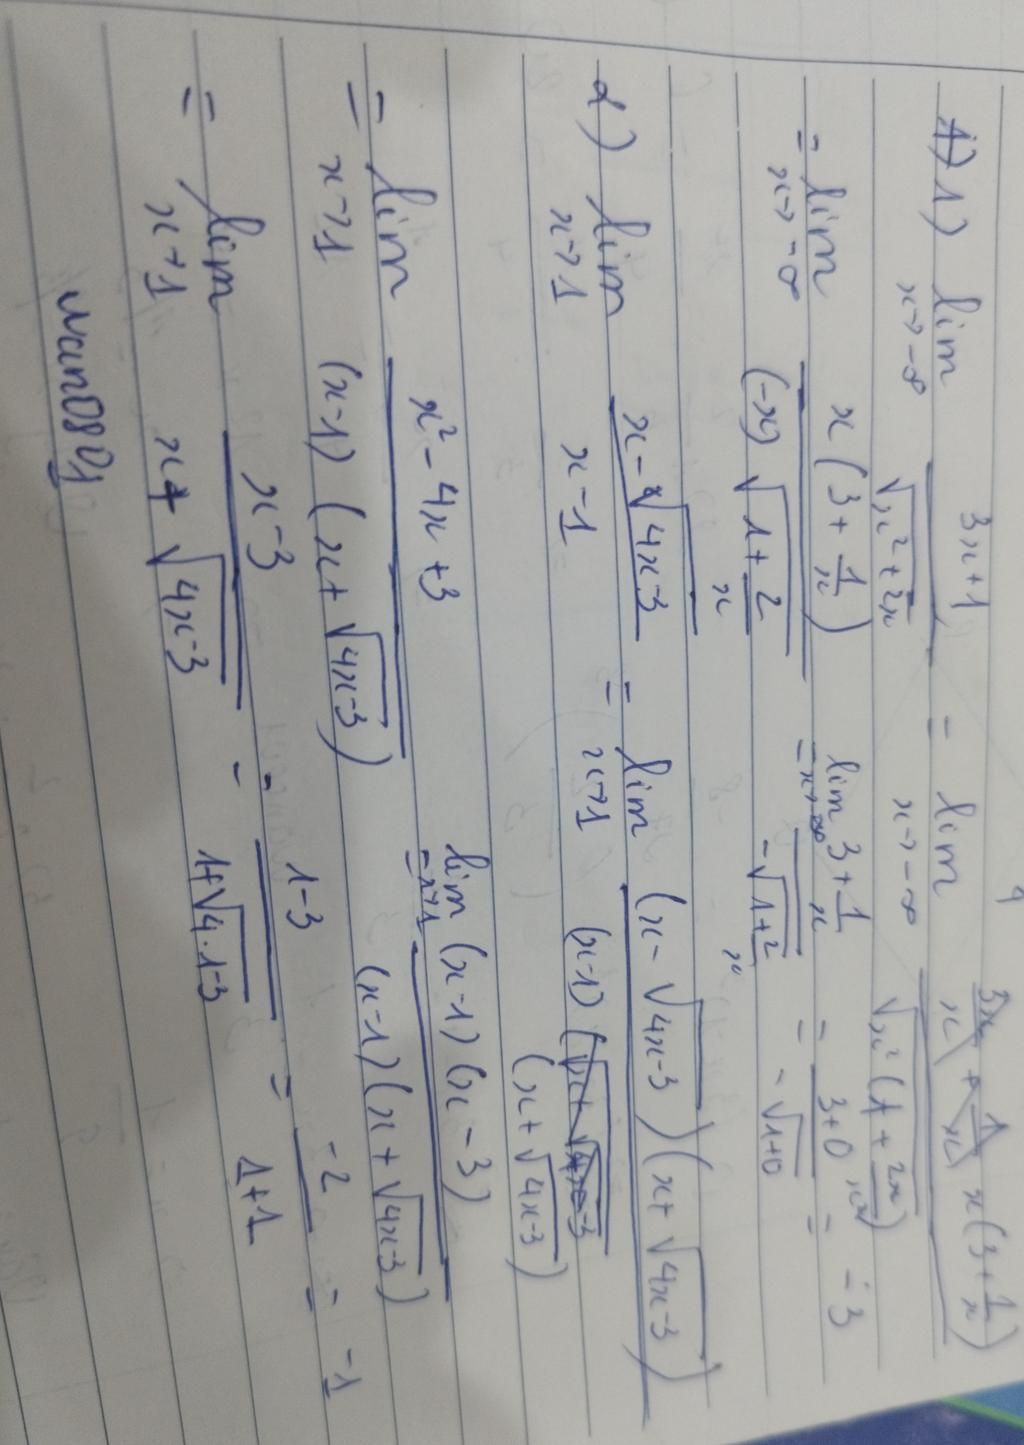 1) lim x→-∞ (3x+1)/√(x²+2x) = lim x→-∞ x(3+1/x)/√(x²(1+2x/x²))
= lim x→-∞ x(3+1/x)/((-x)√(1+2/x)) = lim x→-∞ (3+1/x)/(-√(1+2/x)) = (3+0)/(-√(1+0)) = -3
2) lim x→1 (x-√(4x-3))/(x-1) = lim x→1 (x-√(4x-3))(x+√(4x-3))/((x-1)(x+√(4x-3)))
= lim x→1 (x²-4x+3)/((x-1)(x+√(4x-3))) = lim x→1 (x-1)(x-3)/((x-1)(x+√(4x-3)))
= lim x→1 (x-3)/(x+√(4x-3)) = (1-3)/(1+√(4.1-3)) = -2/(1+1) = -1